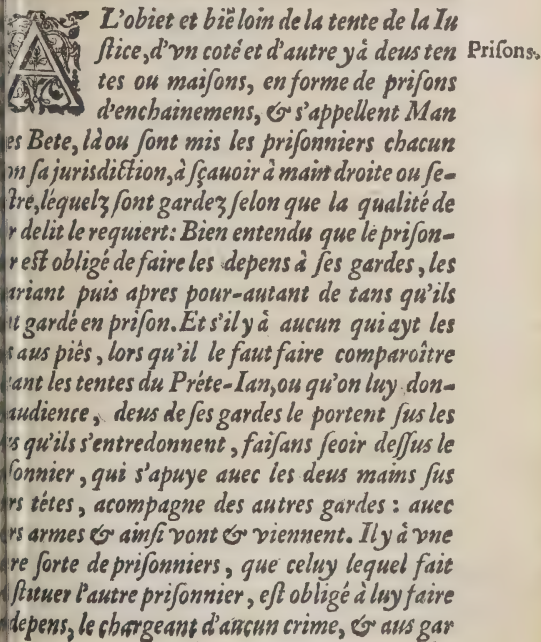 A L'obiet et biẽ loin de la tente de la Iu
ſtice, d'vn coté et d'autre y à deus ten
Priſons.
tes ou maiſons, en forme de priſons
d'enchainemens, & s'appellent Man
es Bete, là ou ſont mis les priſonniers chacun
n ſa jurisdiction, à ſçauoir à main droite ou ſe-
ſtre, léquelz ſont gardez ſelon que la qualité de
r delit le requiert: Bien entendu que le priſon-
r eſt obligé de faire les depens à ſes gardes, les
ariant puis apres pour-autant de tans qu'ils
t gardé en priſon. Et s'il y à aucun qui ayt les
s aus piés, lors qu'il le faut faire comparoître
ant les tentes du Préte-Ian, ou qu'on luy don-
audience, deus de ſes gardes le portent ſus les
s qu'ils s'entredonnent, faiſans ſeoir deſſus le
ſonnier, qui s'apuye auec les deus mains ſus
rs tétes, acompagne des autres gardes: auec
rs armes & ainſi vont & viennent. Il y à vne
re ſorte de priſonniers, que celuy lequel fait
ſtituer l'autre priſonnier, eſt obligé à luy faire
depens, le chargeant d'aucun crime, & aus gar